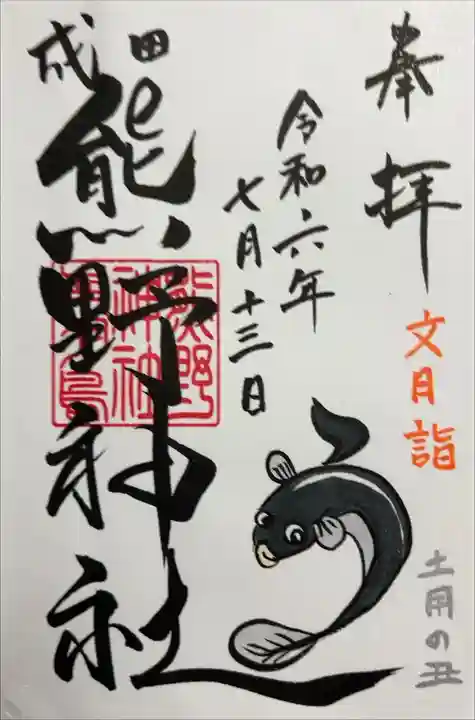 奉拝
文月詣
土用の丑
う
令和六年
七月十三日
成田
熊野神社
熊野
神社